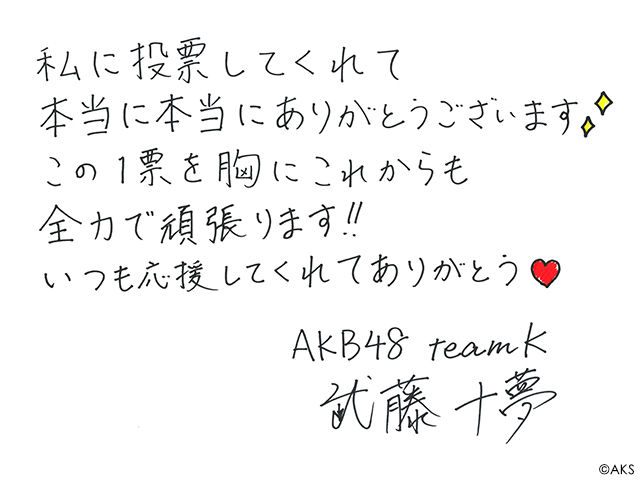 私に投票してくれて
本当に本当にありがとうございます
この1票を胸にこれからも
全力で頑張ります!!
いつも応援してくれてありがとう
AKB48 teamK
武藤十夢
©AKS